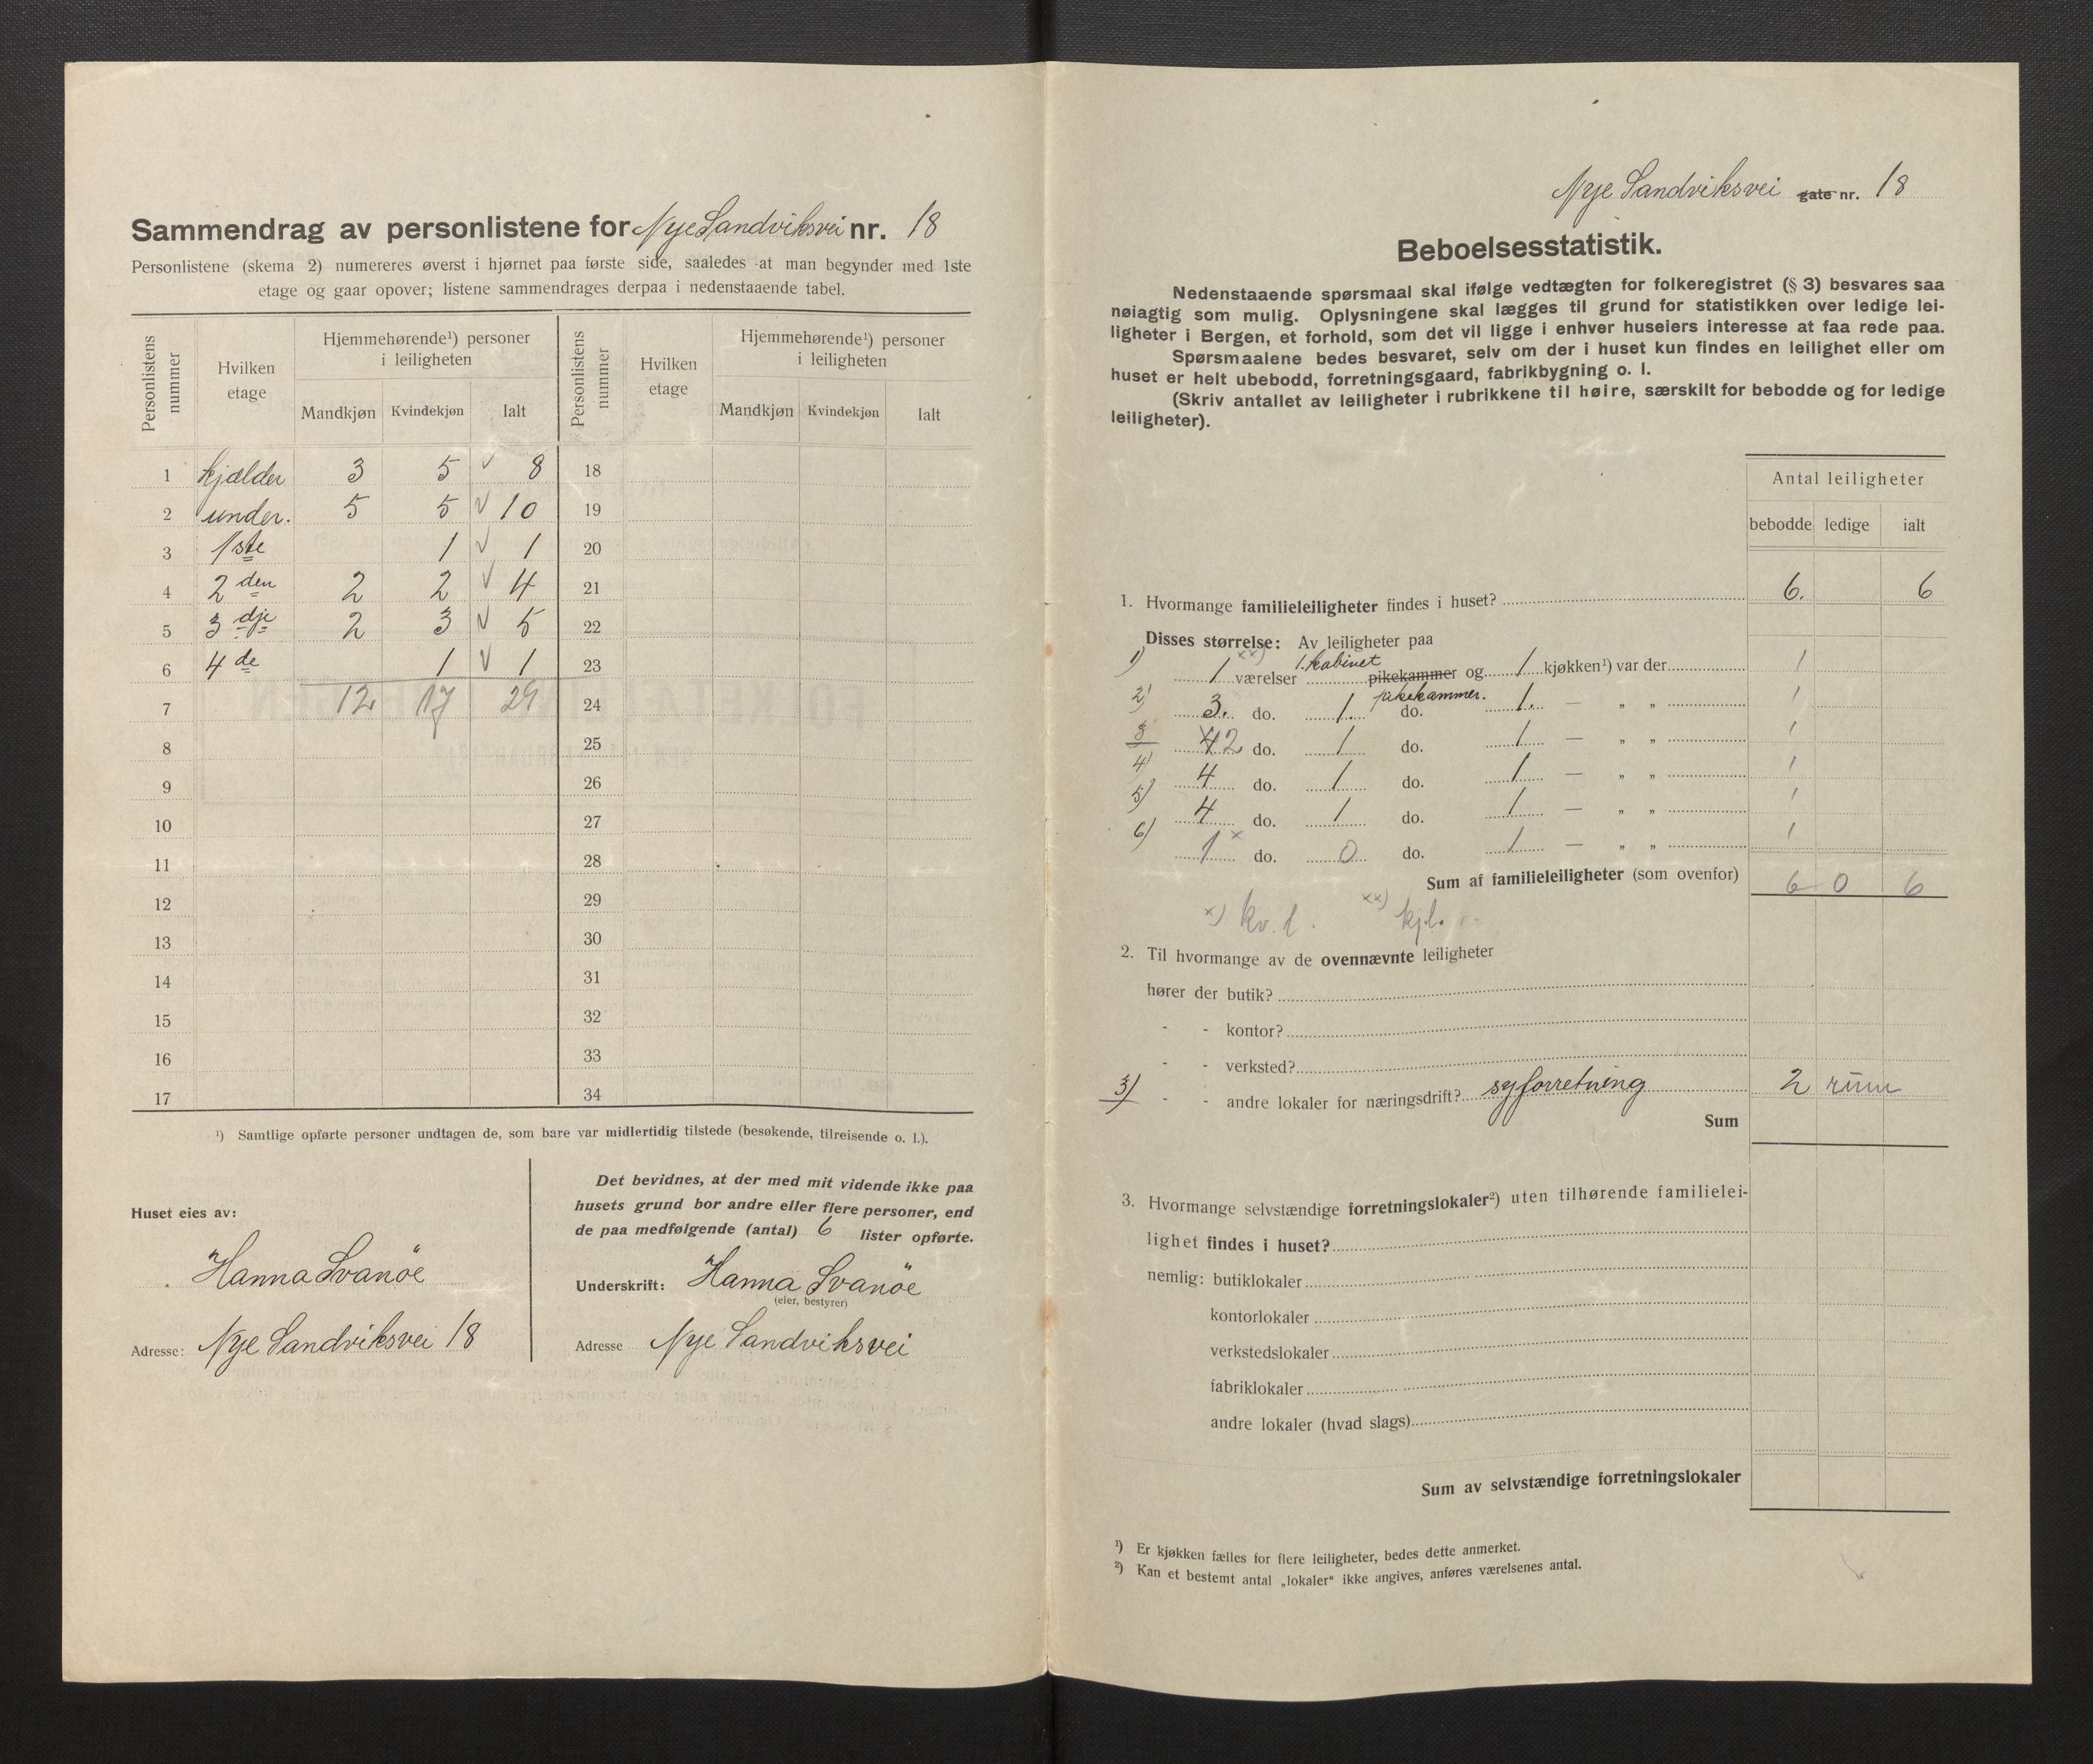 Sammendrag av personlistene for Nye Sandviksvei nr. 18
Personlistene (skema 2) numereres øverst i hjørnet paa første side, saaledes at man begynder med 1ste
etage og gaar opover; listene sammendrages derpaa i nedenstaaende tabel.
Personlistens nummer | Hvilken etage | Hjemmehørende¹) personer i leiligheten | Personlistens nummer | Hvilken etage | Hjemmehørende¹) personer i leiligheten
Mandkjøn | Kvindekjøn | Ialt | Mandkjøn | Kvindekjøn | Ialt
1 kjælder 3 5 √ 8 18
2 under. 5 5 √ 10 19
3 1ste 1 √ 1 20
4 2den 2 2 √ 4 21
5 3dje 2 3 √ 5 22
6 4de 1 √ 1 23
7 12 17 29 24
8 25
9 26
10 27
11 28
12 29
13 30
14 31
15 32
16 33
17 34
¹) Samtlige opførte personer undtagen de, som bare var midlertidig tilstede (besøkende, tilreisende o. l.).
Huset eies av:
Hanna Svanöe
Adresse: Nye Sandviksvei 18
Det bevidnes, at der med mit vidende ikke paa
husets grund bor andre eller flere personer, end
de paa medfølgende (antal) 6 lister opførte.
Underskrift: Hanna Svanöe
(eier, bestyrer)
Adresse Nye Sandviksvei
Nye Sandviksvei gate nr. 18
Beboelsesstatistik.
Nedenstaaende spørsmaal skal ifølge vedtægten for folkeregistret (§ 3) besvares saa
nøiagtig som mulig. Oplysningene skal lægges til grund for statistikken over ledige lei-
ligheter i Bergen, et forhold, som det vil ligge i enhver huseiers interesse at faa rede paa.
Spørsmaalene bedes besvaret, selv om der i huset kun findes en leilighet eller om
huset er helt ubebodd, forretningsgaard, fabrikbygning o. l.
(Skriv antallet av leiligheter i rubrikkene til høire, særskilt for bebodde og for ledige
leiligheter).
Antal leiligheter
bebodde ledige ialt
1. Hvormange familieleiligheter findes i huset? 6. 6
Disses størrelse: Av leiligheter paa
1) 1 xx) værelser 1. kabinet pikekammer og 1 kjøkken¹) var der 1
2) 3. do. 1. pikekammer. do. 1. — „ „ 1
3 4 2 do. 1 do. 1 — „ „ 1
4) 4 do. 1 do. 1 — „ „ 1
5) 4 do. 1 do. 1 — „ „ 1
6) 1 x do. 0 do. 1 — „ „ 1
Sum af familieleiligheter (som ovenfor) 6 0 6
x) kv. l. xx) kjl.
2. Til hvormange av de ovennævnte leiligheter
hører der butik?
- - kontor?
- - verksted?
3) - - andre lokaler for næringsdrift? syforretning 2 rum
Sum
3. Hvormange selvstændige forretningslokaler²) uten tilhørende familielei-
lighet findes i huset?
nemlig: butiklokaler
kontorlokaler
verkstedslokaler
fabriklokaler
andre lokaler (hvad slags)
Sum av selvstændige forretningslokaler
¹) Er kjøkken fælles for flere leiligheter, bedes dette anmerket.
²) Kan et bestemt antal „lokaler" ikke angives, anføres værelsenes antal.